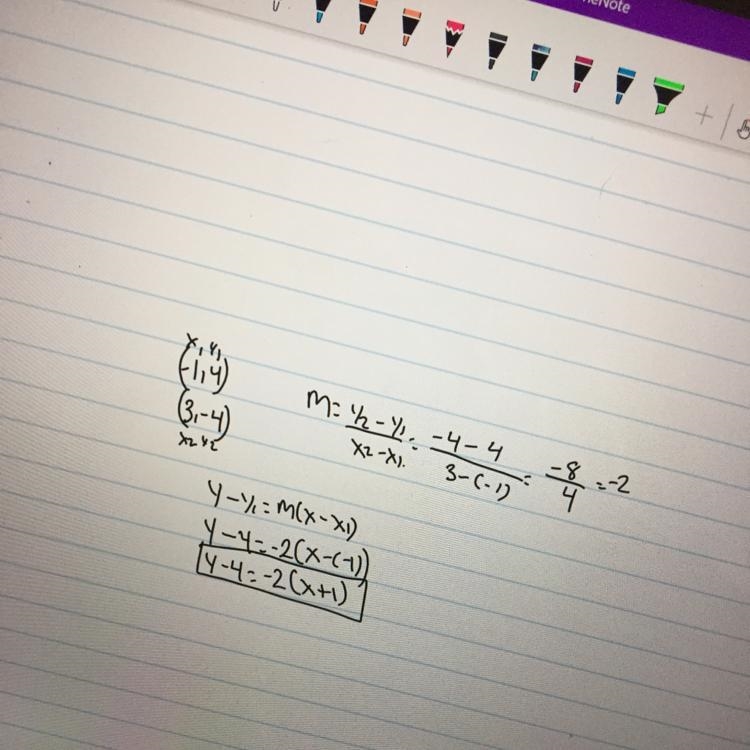 x₁ y₁
(-1, 4)
(3, -4)
x₂ y₂
m = y₂ - y₁ / x₂ - x₁ = -4 - 4 / 3 - (-1) = -8 / 4 = -2
y - y₁ = m(x - x₁)
y - 4 = -2(x - (-1))
y - 4 = -2(x + 1)